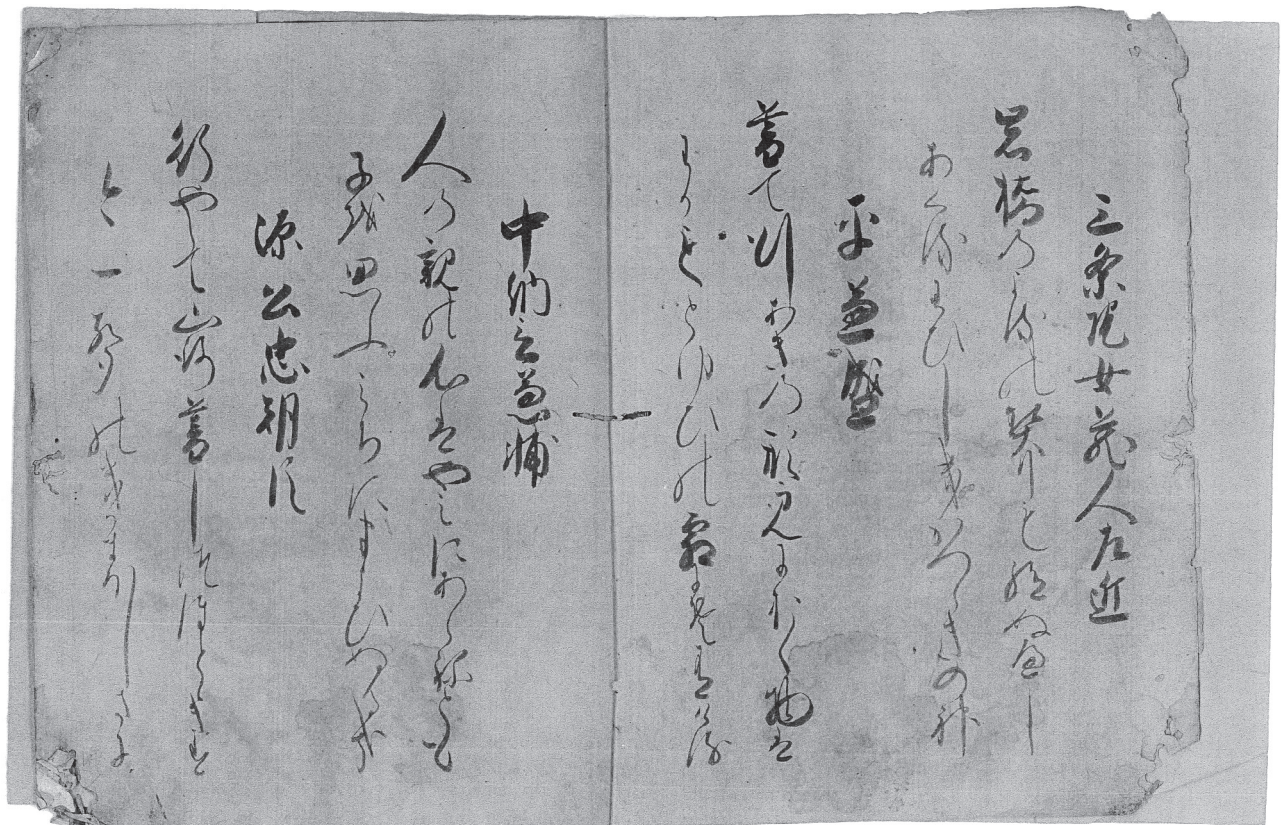 三条院女蔵人左近
岩橋のよるの契りも絶ぬへし
あくるわひしきかつらきの神
平兼盛
暮て行あきの形見にをく物は
わかもとゆひの霜にそ有ける
中納言兼輔
人の親の心はやみにあらねとも
子を思ふみちにまよひぬるかな
源公忠朝臣
行やらて山路暮しつほとゝきす
今一聲のきかまほしさに